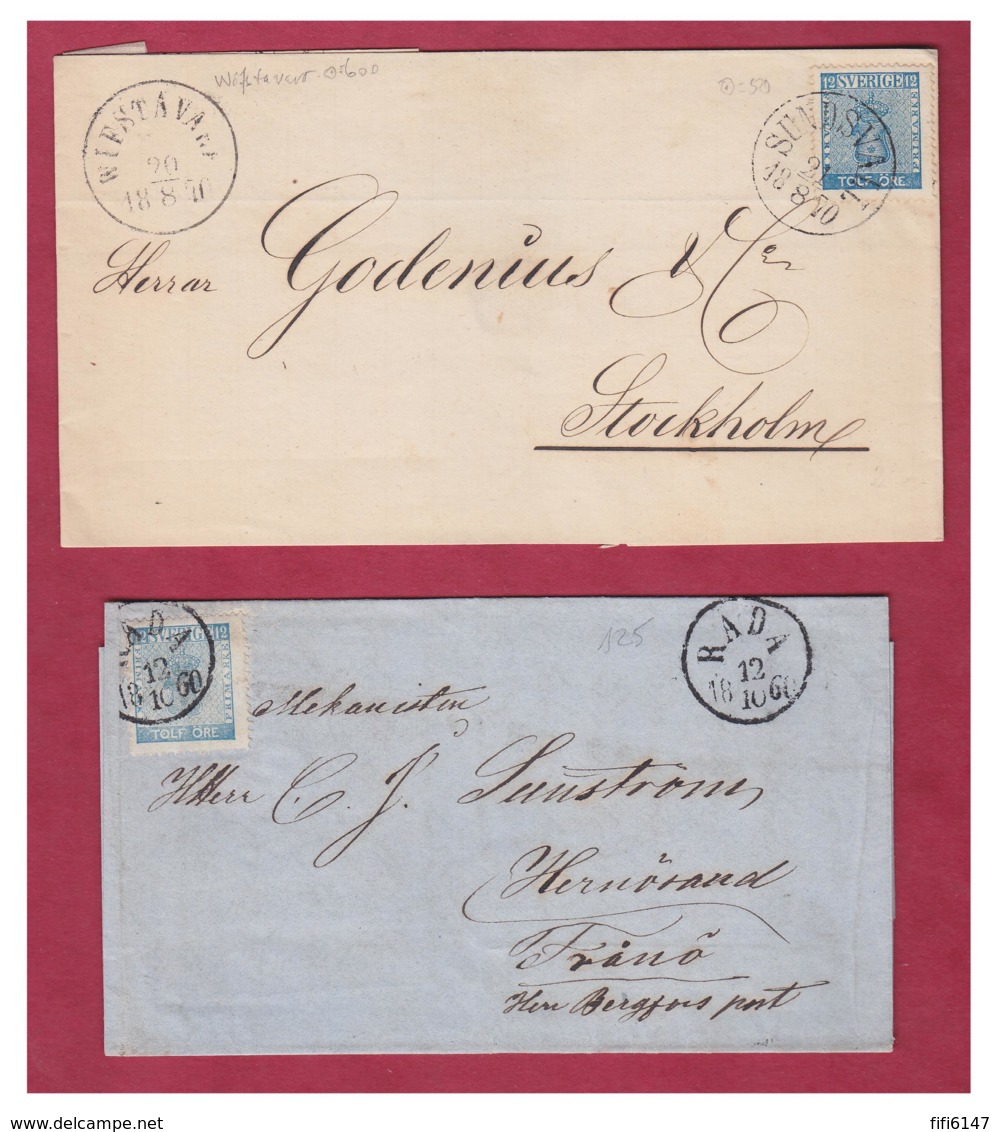 Wifstavarf ⊙=600
⊙=50
WIFSTAVARF
20
18 8 70
12 SVERIGE 12
FRIMÄRKE
TOLF ÖRE
SUNDSVALL
21
18 8 70
Herrar Godenius & Co
Stockholm
125
RADA
12
18 10 60
12 SVERIGE 12
FRIMÄRKE
TOLF ÖRE
RADA
12
18 10 60
Mekanisten
Herr C. J. Sunström
Hernösand
Frånö
Herr Bergfors port
delcampe.net
fifi6147